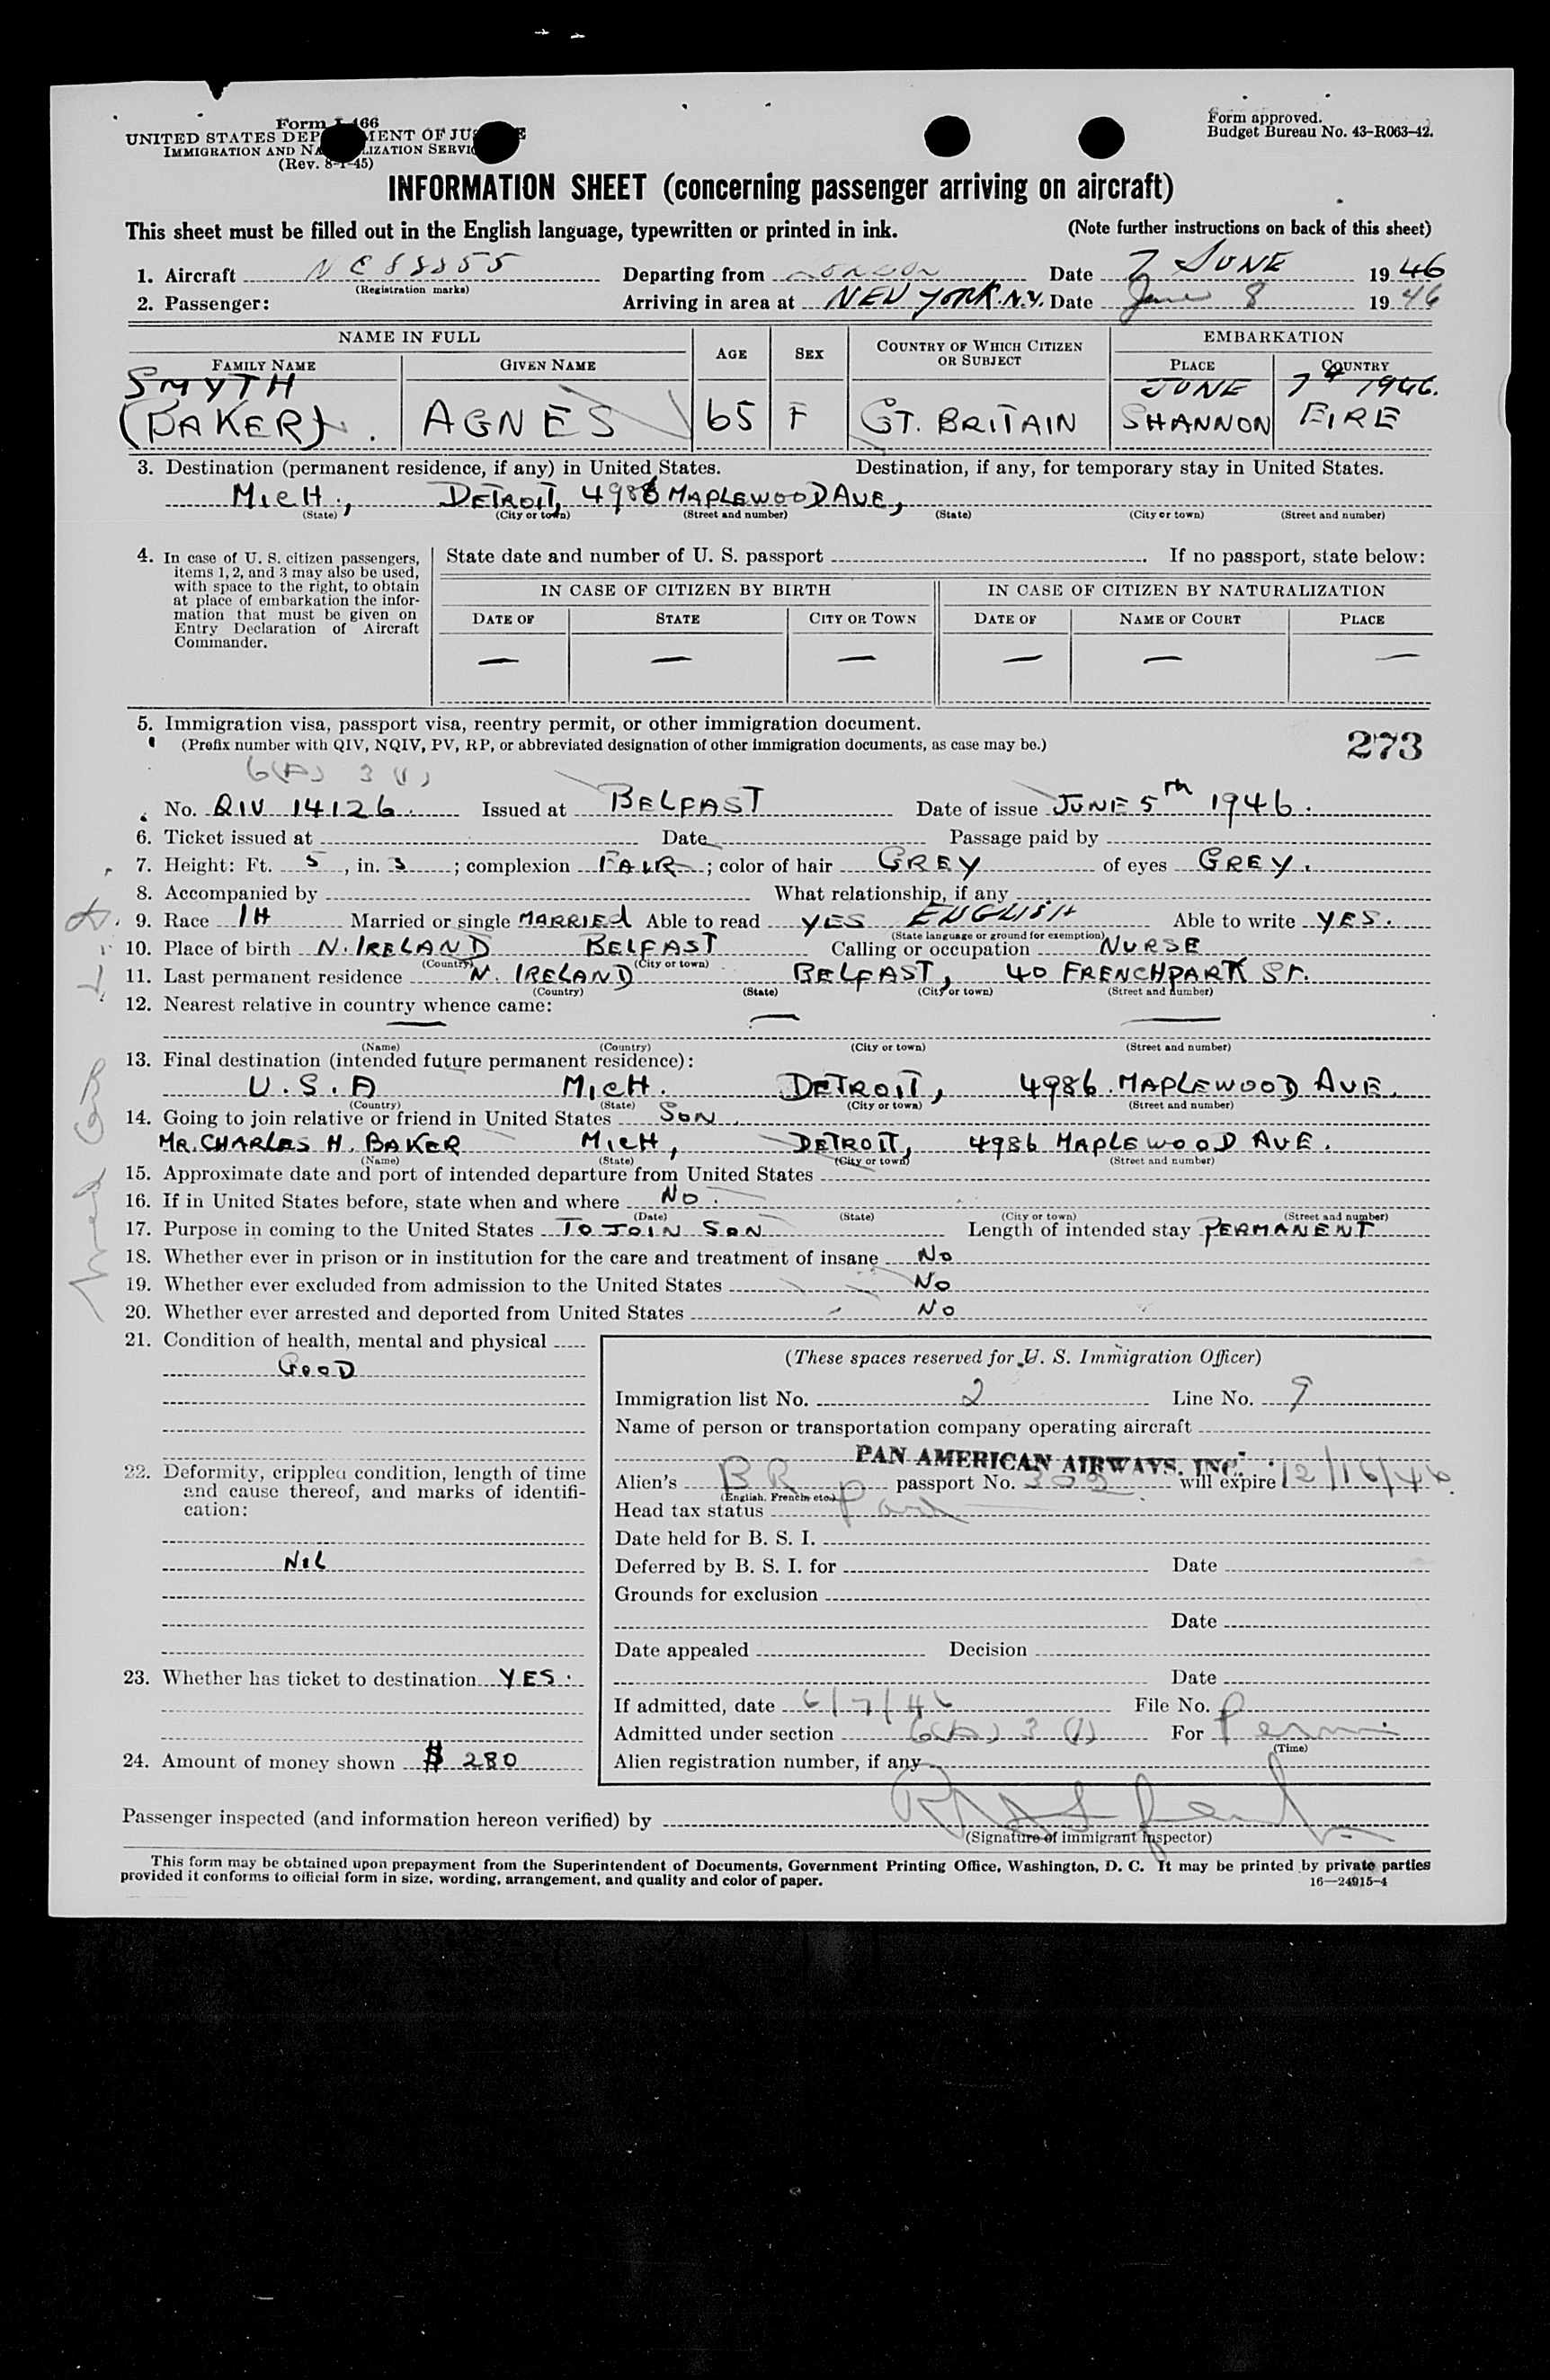 Form I-466
UNITED STATES DEPARTMENT OF JUSTICE
IMMIGRATION AND NATURALIZATION SERVICE
(Rev. 8-1-45)
Form approved.
Budget Bureau No. 43-R063-42.
INFORMATION SHEET (concerning passenger arriving on aircraft)
This sheet must be filled out in the English language, typewritten or printed in ink. (Note further instructions on back of this sheet)
1. Aircraft NC88855 Departing from London Date 7 JUNE 1946
(Registration marks)
2. Passenger: Arriving in area at NEW YORK. N.Y. Date June 8 1946
NAME IN FULL AGE SEX COUNTRY OF WHICH CITIZEN OR SUBJECT EMBARKATION
FAMILY NAME GIVEN NAME PLACE COUNTRY
SMYTH JUNE 7th 1946.
(BAKER). AGNES 65 F GT. BRITAIN SHANNON EIRE
3. Destination (permanent residence, if any) in United States. Destination, if any, for temporary stay in United States.
MICH., DETROIT, 4986 MAPLEWOOD AVE,
(State) (City or town) (Street and number) (State) (City or town) (Street and number)
4. In case of U. S. citizen passengers, items 1, 2, and 3 may also be used, with space to the right, to obtain at place of embarkation the information that must be given on Entry Declaration of Aircraft Commander.
State date and number of U. S. passport If no passport, state below:
IN CASE OF CITIZEN BY BIRTH IN CASE OF CITIZEN BY NATURALIZATION
DATE OF STATE CITY OR TOWN DATE OF NAME OF COURT PLACE
— — — — — —
5. Immigration visa, passport visa, reentry permit, or other immigration document.
(Prefix number with QIV, NQIV, PV, RP, or abbreviated designation of other immigration documents, as case may be.)
273
6(A) 3 (1)
No. QIV 14126. Issued at BELFAST Date of issue JUNE 5th 1946.
6. Ticket issued at Date Passage paid by
7. Height: Ft. 5, in. 3; complexion FAIR; color of hair GREY of eyes GREY.
8. Accompanied by What relationship, if any
9. Race IH Married or single MARRIEd Able to read YES ENGLISH Able to write YES.
(State language or ground for exemption)
10. Place of birth N. IRELAND BELFAST Calling or occupation NURSE
(Country) (City or town)
11. Last permanent residence N. IRELAND BELFAST, 40 FRENCHPARK ST.
(Country) (State) (City or town) (Street and number)
12. Nearest relative in country whence came:
— — —
(Name) (Country) (City or town) (Street and number)
13. Final destination (intended future permanent residence):
U.S.A MICH. DETROIT, 4986. MAPLEWOOD AVE.
(Country) (State) (City or town) (Street and number)
14. Going to join relative or friend in United States SON.
MR. CHARLES H. BAKER MICH, DETROIT, 4986 MAPLEWOOD AVE.
(Name) (State) (City or town) (Street and number)
15. Approximate date and port of intended departure from United States
16. If in United States before, state when and where NO.
(Date) (State) (City or town) (Street and number)
17. Purpose in coming to the United States TO JOIN SON Length of intended stay PERMANENT
18. Whether ever in prison or in institution for the care and treatment of insane NO
19. Whether ever excluded from admission to the United States NO
20. Whether ever arrested and deported from United States NO
21. Condition of health, mental and physical
GOOD
22. Deformity, crippled condition, length of time and cause thereof, and marks of identification:
NIL
23. Whether has ticket to destination YES.
24. Amount of money shown $ 280
(These spaces reserved for U. S. Immigration Officer)
Immigration list No. 2 Line No. 9
Name of person or transportation company operating aircraft
PAN AMERICAN AIRWAYS, INC.
Alien's BR passport No. 302 will expire 12/16/46.
(English, French, etc.)
Head tax status Paid
Date held for B. S. I.
Deferred by B. S. I. for Date
Grounds for exclusion
Date
Date appealed Decision
Date
If admitted, date 6/7/46 File No.
Admitted under section 6(A) 3 (1) For Perm
(Time)
Alien registration number, if any
Passenger inspected (and information hereon verified) by
(Signature of immigrant inspector)
This form may be obtained upon prepayment from the Superintendent of Documents, Government Printing Office, Washington, D. C. It may be printed by private parties
provided it conforms to official form in size, wording, arrangement, and quality and color of paper. 16—24915-4